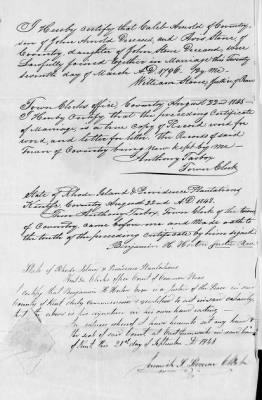 I Hereby certify that Caleb Arnold of Coventry,
son of John Arnold Deceased, and Rhos Stone, of
Coventry, daughter of John Stone Deceased, were
Lawfully joined together in Marriage this Twenty
seventh day of March A.D. 1796. By Me
William Stone, Justice of Peace
Town Clerks office, Coventry August 22nd 1843
I Hereby Certify that the preceding Certificate
of Marriage is a true copy of Record, word for
word, and letter for letter. The Records of said
Town of Coventry being now kept by me
Anthony Tarbox
Town Clerk
State of Rhode Island & Providence Plantations
Kent Sc. Coventry August 22nd A.D. 1843.
Then Anthony Tarbox, Town Clerk of the town
of Coventry, came before me and Made oath to
the truth of the preceding certificate by him signed.
Benjamin H. Horton Justice Peace
State of Rhode Island & Providence Plantations
Kent Sc. Clerks office Court of Common Pleas
I certify that Benjamin H. Horton Esqr. is a Justice of the Peace in said
County of Kent duly Commissioned & qualified to act
the above as his signature in his own hand writing
In witness whereof I have hereunto set my hand &
the seal of said Court at East Greenwich in said County
of Kent this 21st day of September AD 1843
Clerk